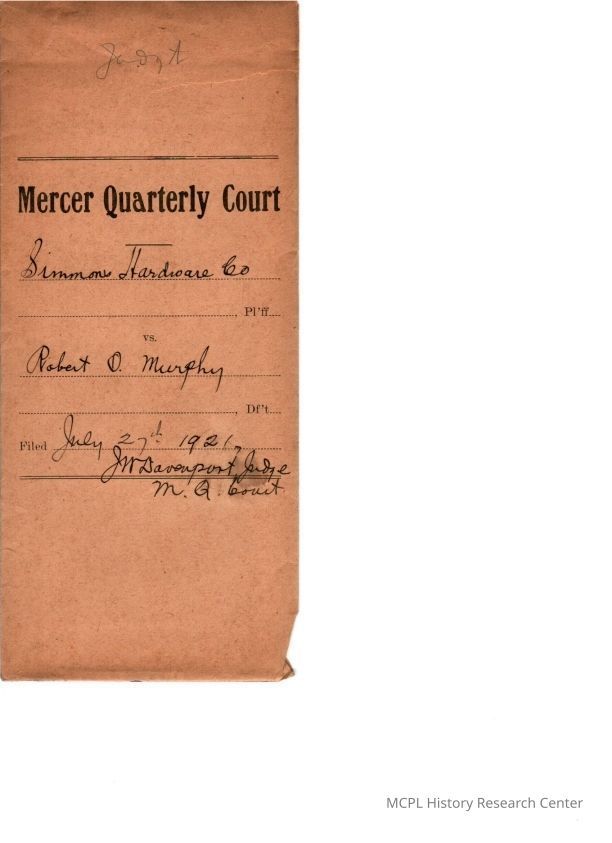 Judgt
Mercer Quarterly Court
Simmons Hardware Co
, Pl'ff.
vs.
Robert O. Murphy
, Df't.
Filed July 27th 1921,
JW Davenport, Judge
M. Q. Court
MCPL History Research Center